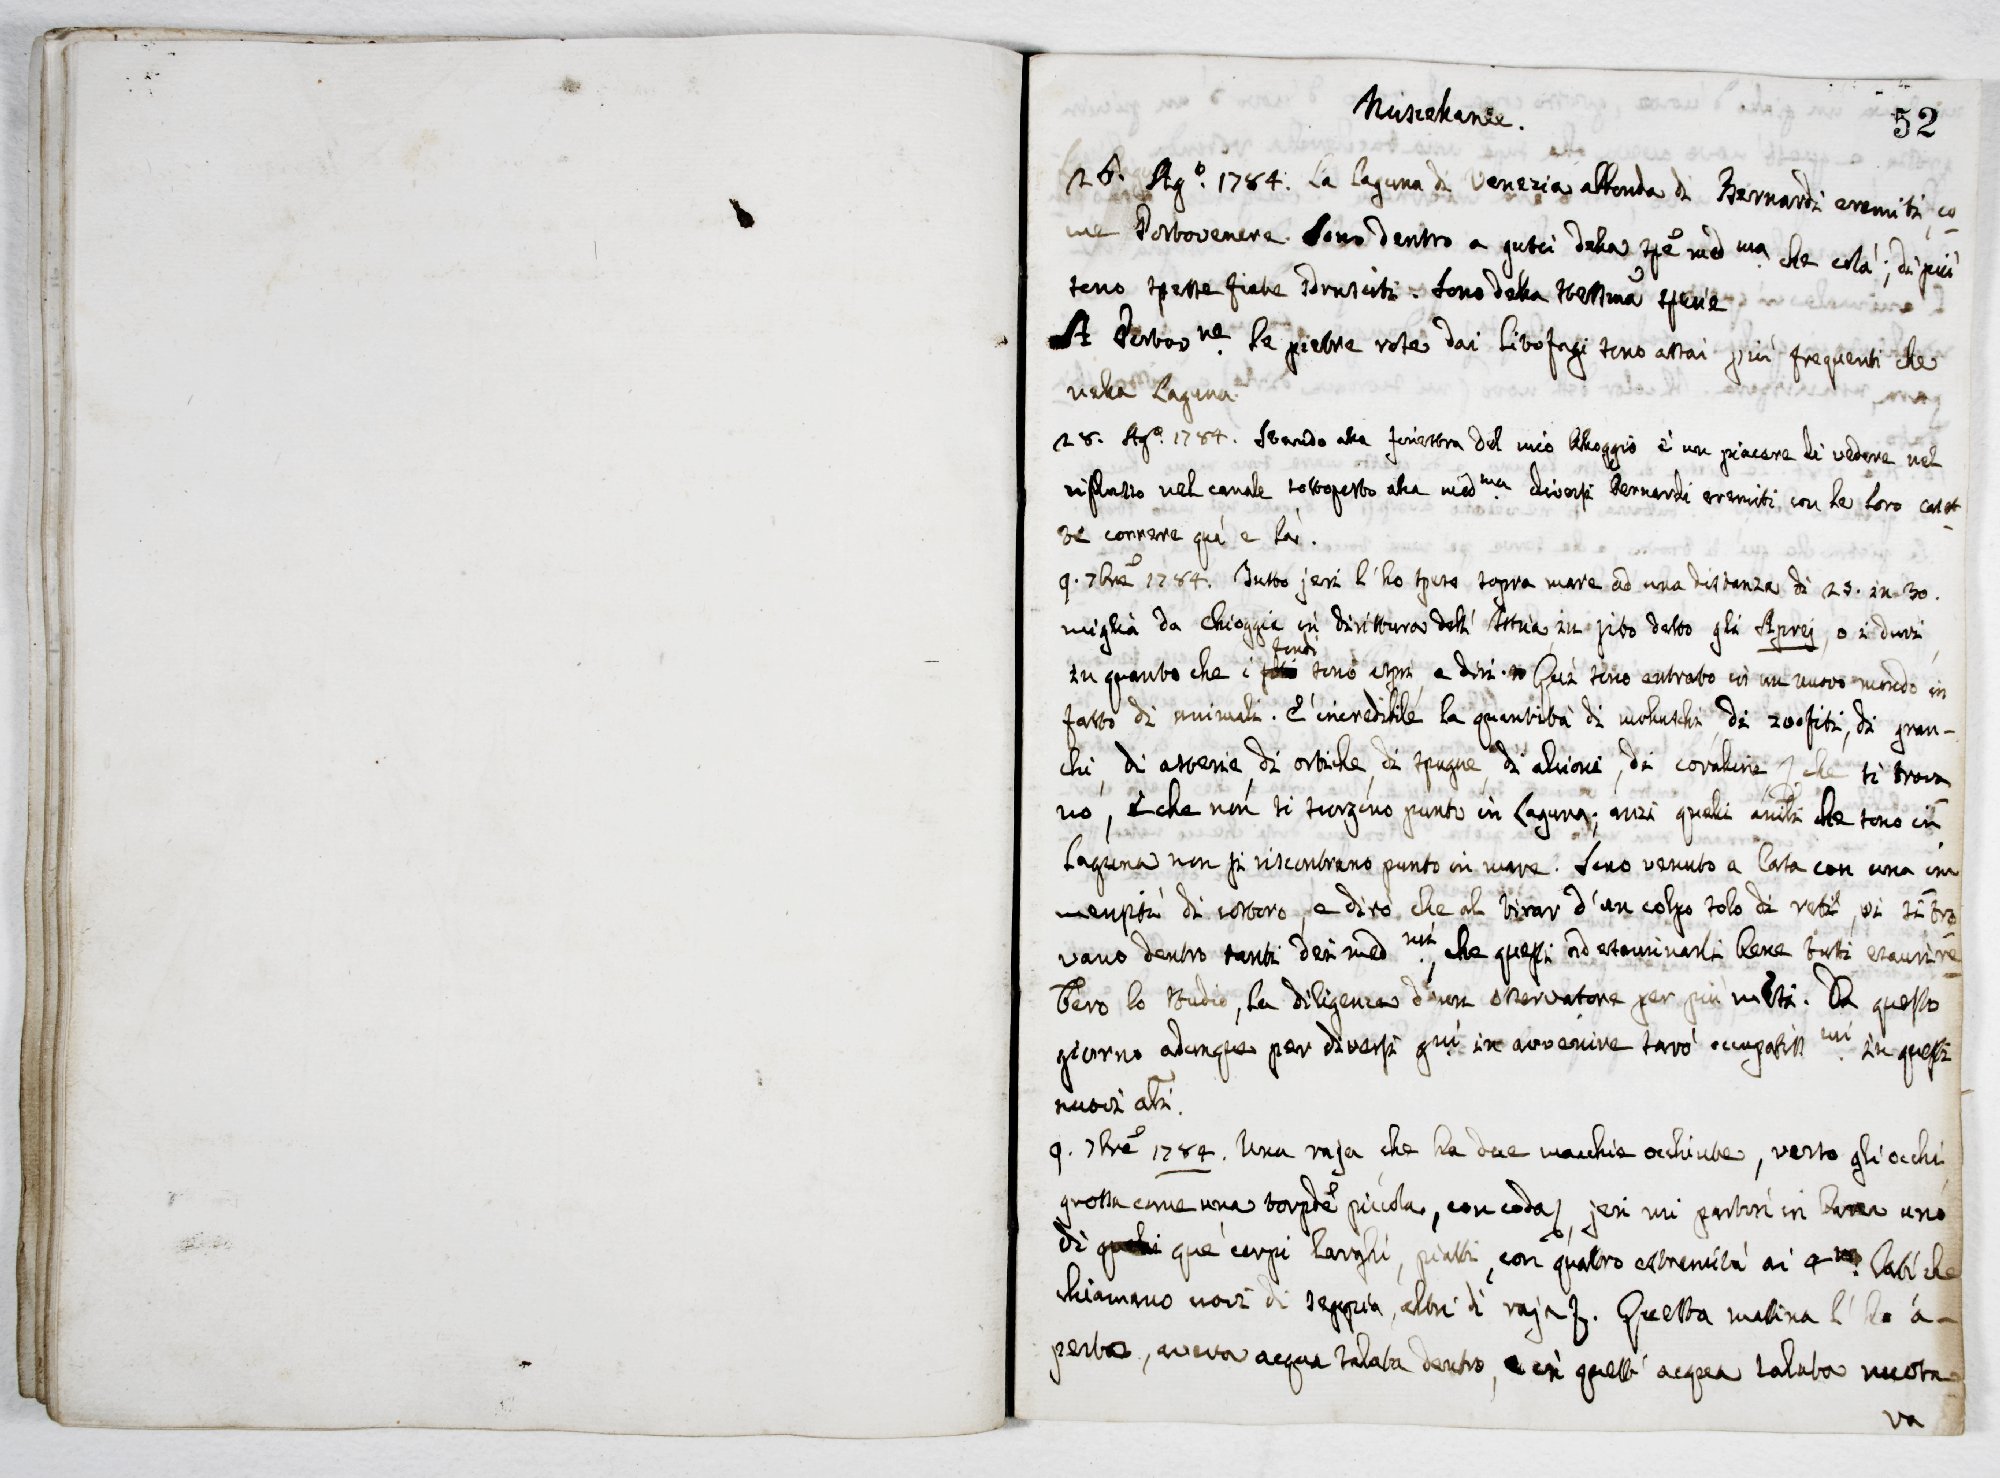 Miscellanee.
52
26. Ag.º 1784. La laguna di Venezia abbonda di Bernardi eremiti, co
me Portovenere. Sono dentro a gusci della spe medma che colà; di più
sono spesse fiate sdrusciti. Sono della stessma spezie
A Portovne le pietre rose dai litofagi sono assai più frequenti che
nella Laguna.
28. Ag.º 1784. Stando alla finestra del mio alloggio è un piacere di vedere nel
riflusso nel canale sottoposto alla medma diversi Bernardi erremiti con le loro caset
te correre quà e là.
9. 7bre 1784. Tutto jeri l'ho speso sopra mare ad una distanza di 25. in 30.
miglia da Chioggia in dirittura dell' Istria in sito detto gli Aprej, o i duri,
in quanto che i fondi sono aspri e duri. Quì sono entrato in un nuovo mondo in
fatto di animali. È incredibile la quantità di molluschi, di zoofiti, di gran-
chi, di asterie, di ortiche, di spugne, di alcioni, di coralline che si trova
no, e che non si scorgono punto in Laguna; anzi quelli che sono in
Laguna non si riscontrano punto in mare. Sono venuto a Casa con una im
mensità di costoro, e dirò che al tirar d'un colpo solo di reti, vi si tro
vano dentro tanti dei medmi, che questi ad esaminarli bene tutti esaurireb
bero lo studio, la diligenza d'un osservatore per più mesi. Da questo
giorno adunque per diversi gni in avvenire sarò occupatissmi in questi
nuovi ali.
9. 7bre 1784. Una raja che ha due macchie occhiute, verso gli occhi,
grossa come una torpde piccola, con coda, jeri mi partorì in barca uno
di que' corpi larghi, piatti, con quattro estremità ai 4 lati che
chiamano uovi di seppia, altri di raja. Questa mattina l'ho a-
perto, aveva acqua salata dentro, e in quell' acqua salata nuota
va